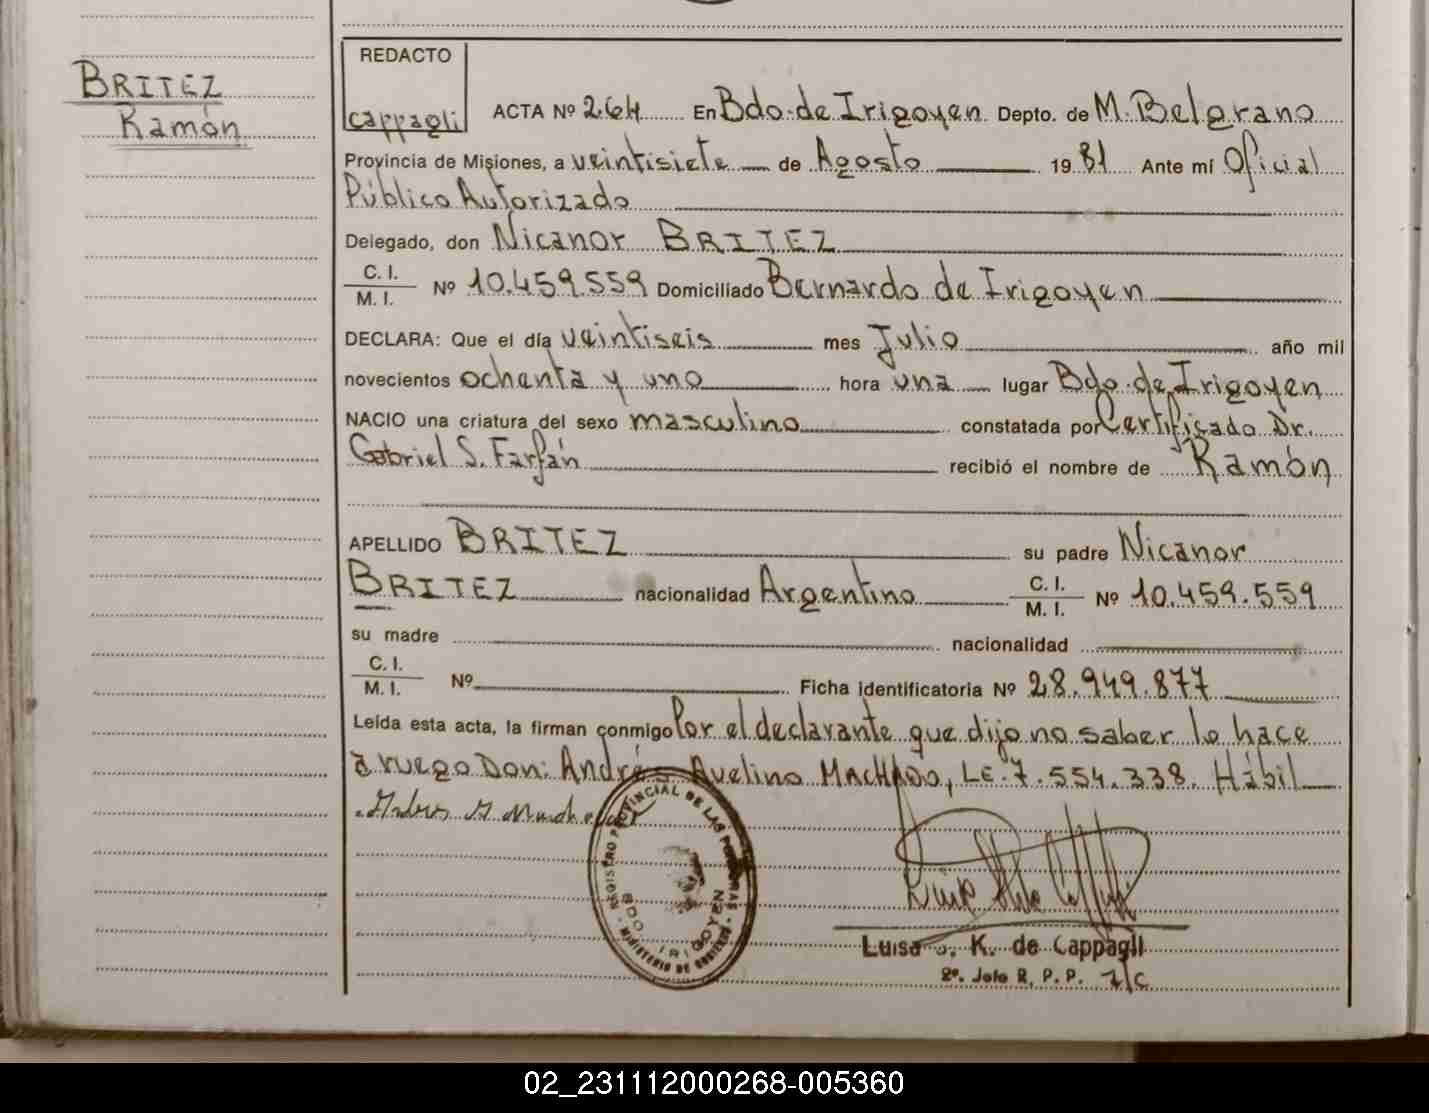 BRITEZ
Ramón
REDACTO
cappagli
ACTA Nº 264 En Bdo. de Irigoyen Depto. de M. Belgrano
Provincia de Misiones, a veintisiete de Agosto 1981 Ante mí Oficial
Público Autorizado
Delegado, don Nicanor BRITEZ
C. I.
M. I. Nº 10.459.559 Domiciliado Bernardo de Irigoyen
DECLARA: Que el día veintiseis mes Julio año mil
novecientos ochenta y uno hora una lugar Bdo. de Irigoyen
NACIO una criatura del sexo masculino constatada por Certificado Dr.
Gabriel S. Farfán recibió el nombre de Ramón
APELLIDO BRITEZ su padre Nicanor
BRITEZ nacionalidad Argentino C. I.
M. I. Nº 10.459.559
su madre nacionalidad
C. I.
M. I. Nº Ficha Identificatoria Nº 28.949.877
Leída esta acta, la firman conmigo Por el declarante que dijo no saber lo hace
a ruego Don: Andrés Avelino MACHADO, LE. 7.554.338. Hábil
REGISTRO PROVINCIAL DE LAS PERSONAS
BDO. IRIGOYEN
MINISTERIO DE GOBIERNO
Luisa J. K. de Cappagli
2º. Jefe R. P. P. I/C
02_231112000268-005360